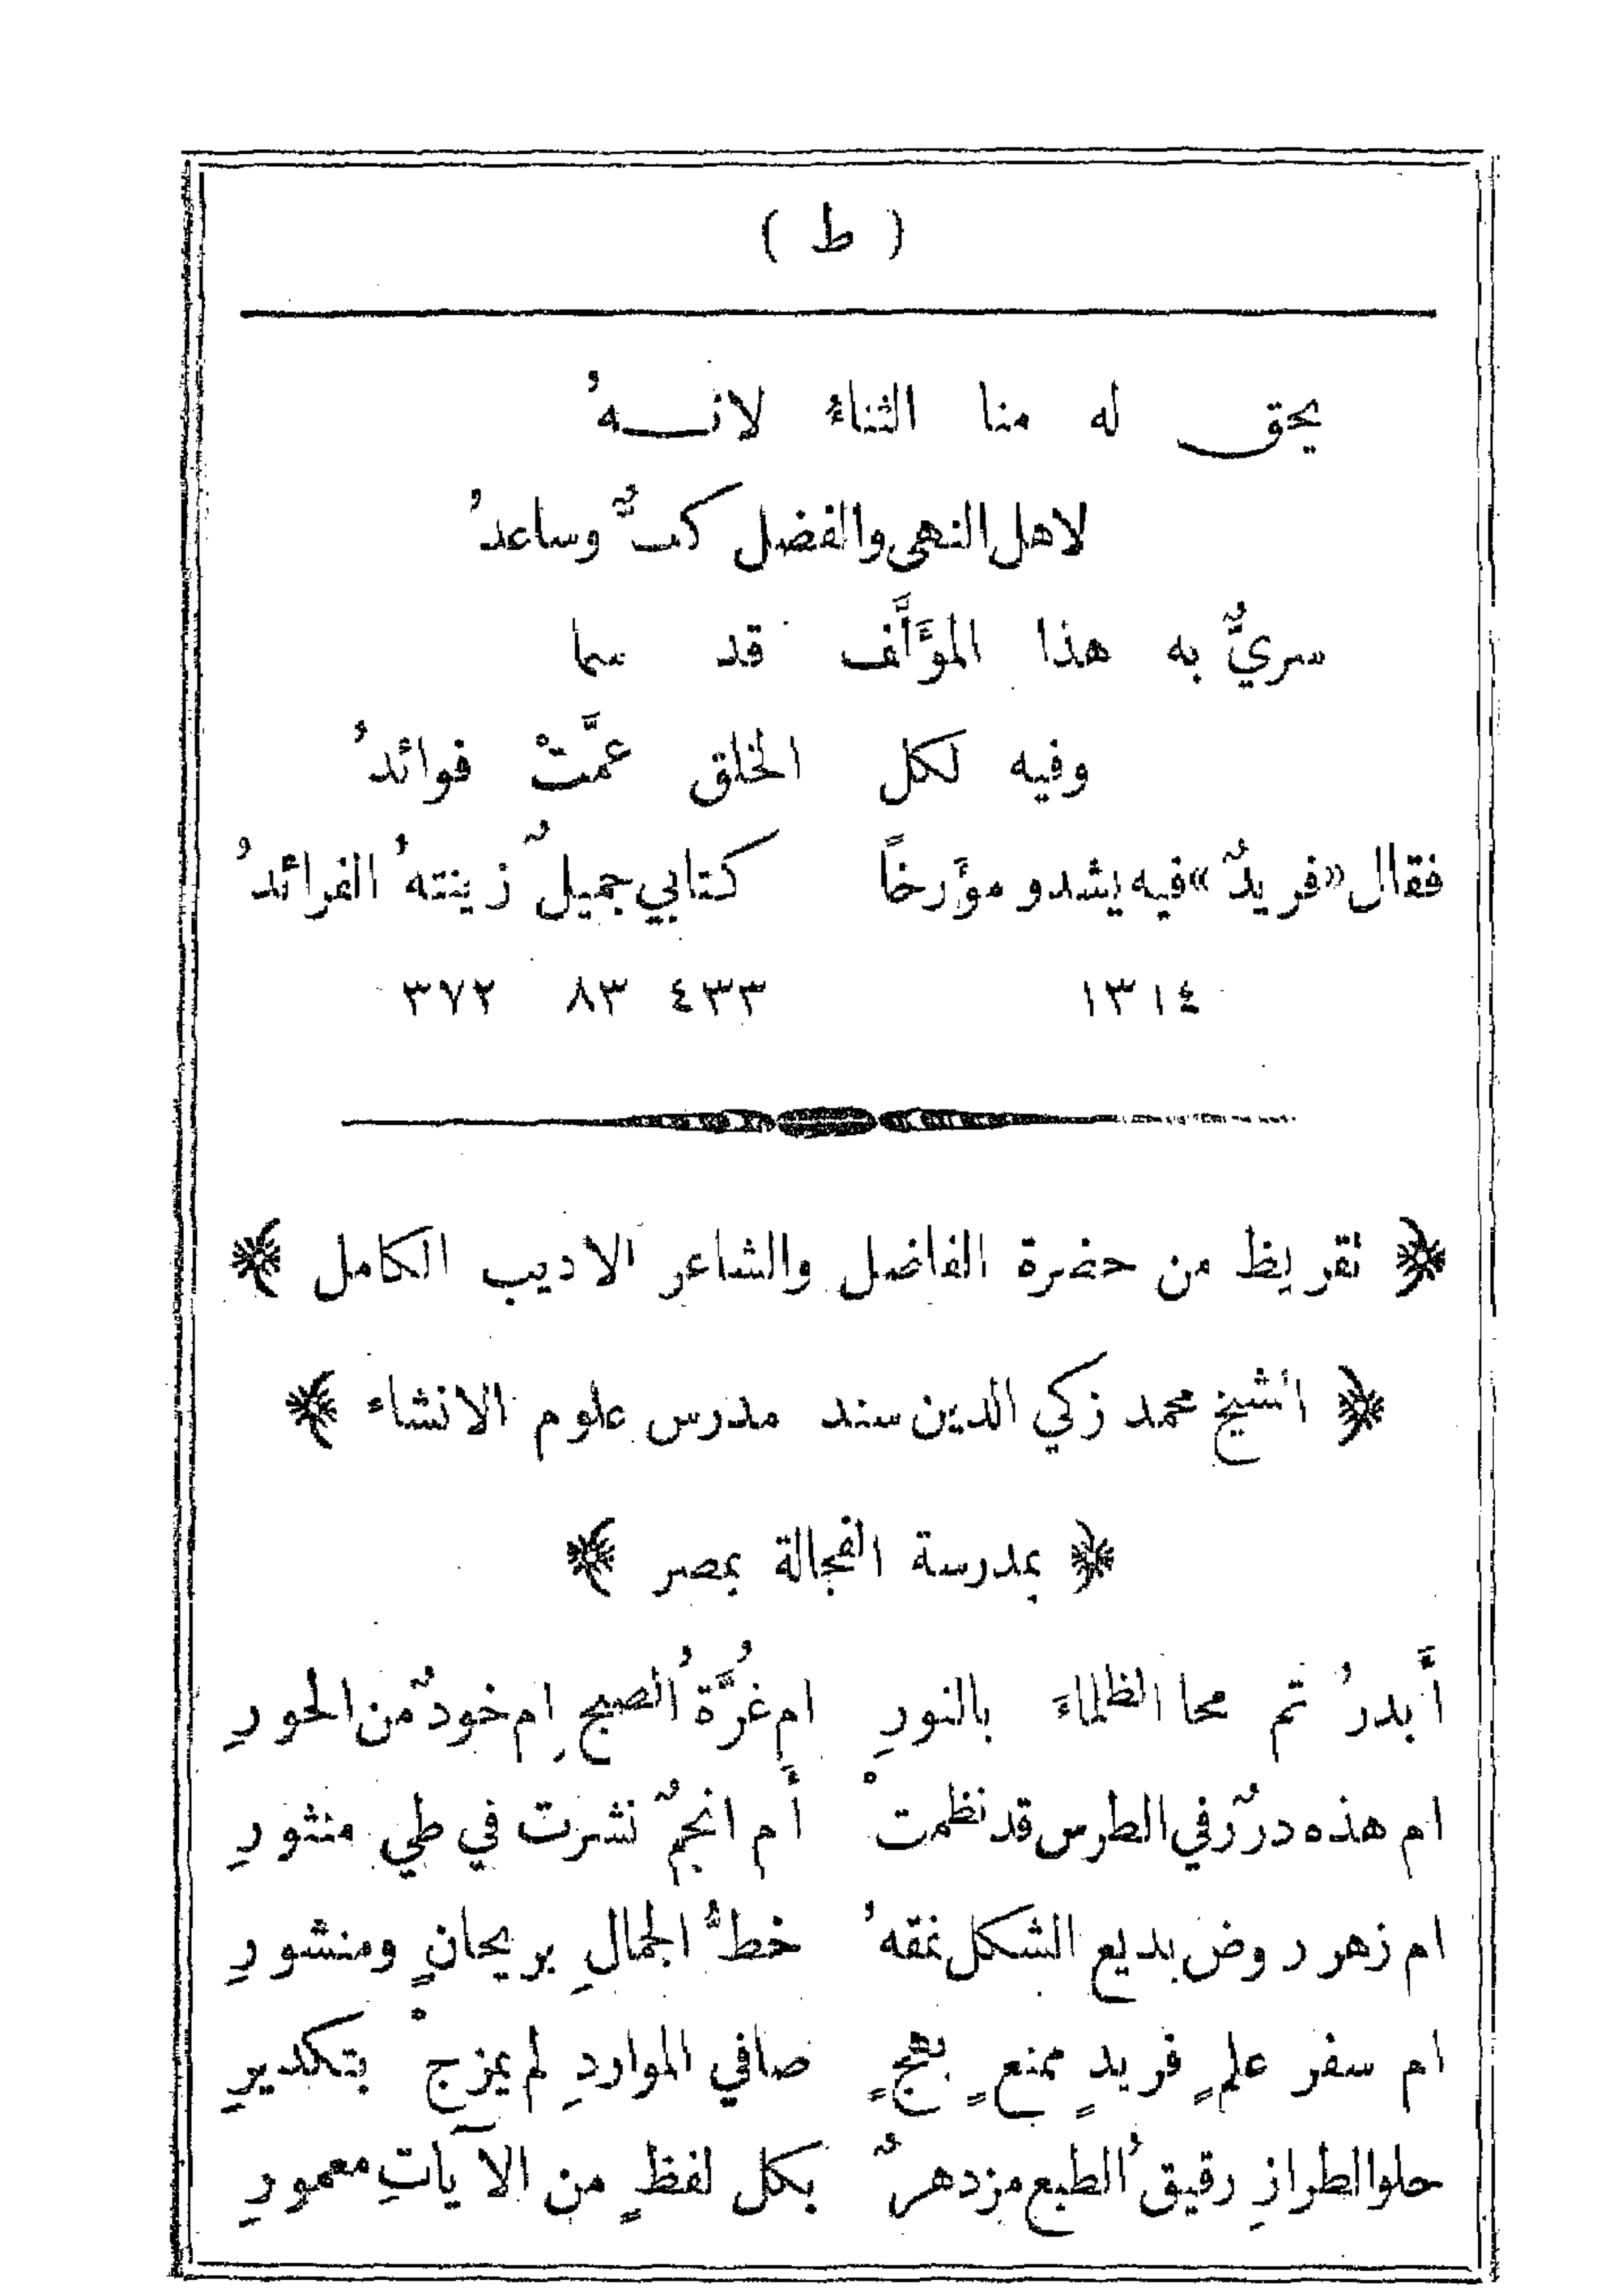 ( ط )
يحق له منا الثناءُ لانــهُ
لاهل النهى والفضل كفٌ وساعدُ
سريٌّ به هذا المؤَلَّف قد سما
وفيه لكل الخلق عمَّتْ فوائدُ
فقال «فريدٌ» فيه يشدو مؤَرخاً كتابي جميلٌ زينتهُ الفرائدُ
١٣١٤ ٤٣٣ ٨٣ ٣٧٢
﴿ تقريظ من حضرة الفاضل والشاعر الاديب الكامل ﴾
﴿ الشيخ محمد زكي الدين سند مدرس علوم الانشاء ﴾
﴿ بمدرسة الفجالة بمصر ﴾
أَبدرُ تم محا الظلماءَ بالنورِ ام غُرَّةُ الصبحِ ام خودٌ من الحورِ
ام هذه دررٌ في الطرس قد نظمتْ أم انجمٌ نثرت في طي منثورِ
ام زهر روض بديع الشكل نمقهُ خطُّ الجمالِ بريحانٍ ومنشورِ
ام سفر علمٍ فريدٍ ممتعٍ بهجٍ صافي المواردِ لم يمزجْ بتكديرِ
حلو الطرازِ رقيقُ الطبع مزدهرٌ بكل لفظٍ من الآياتِ معمورِ